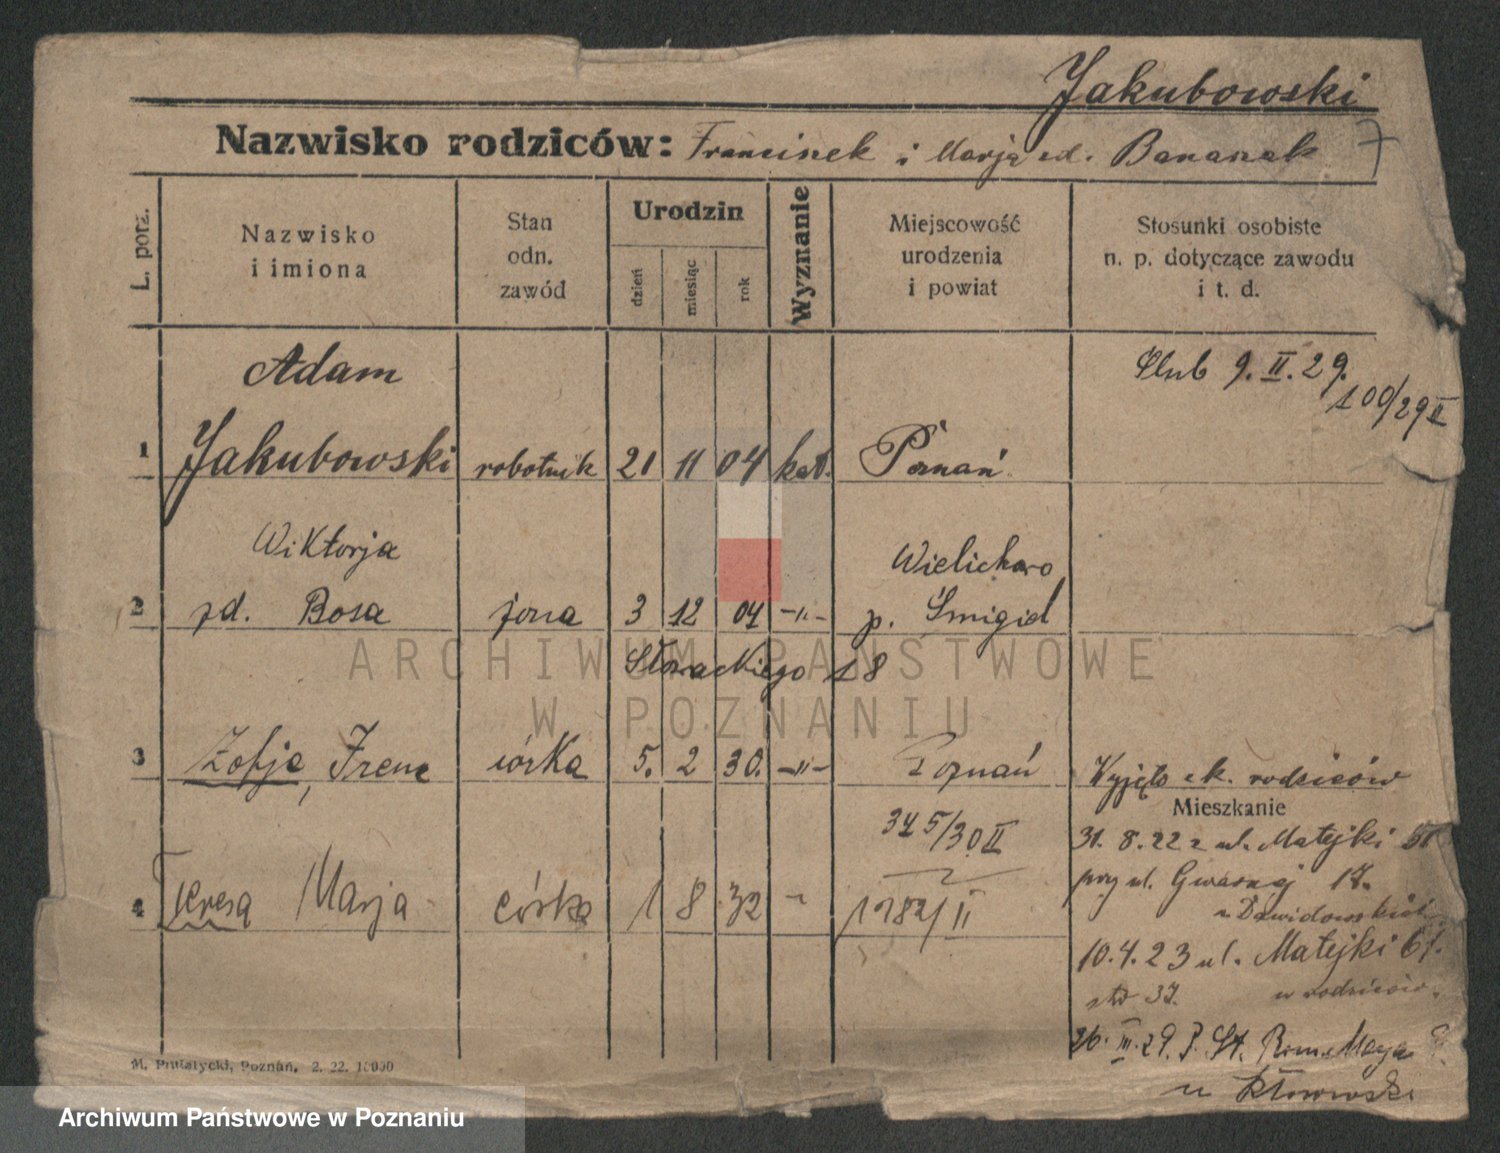 Jakubowski
7
Nazwisko rodziców: Franciszek i Marja zd. Banaszak
L. porz.
Nazwisko i imiona
Stan odn. zawód
Urodzin
dzień
miesiąc
rok
Wyznanie
Miejscowość urodzenia i powiat
Stosunki osobiste n. p. dotyczące zawodu i t. d.
Adam
Ślub 9. II. 29.
100/29 II
1 Jakubowski robotnik 21 11 04 kat. Poznań
Wiktorja
Wielichowo
2 zd. Bosa żona 3 12 04 -"- p. Śmigiel
Słowackiego 18
3 Zofja, Irena córka 5. 2 30. -"- Poznań
Wyjęto z k. rodziców
Mieszkanie
345/30 II
31. 8. 22 z ul. Matejki
przy ul. 17.
4 Teresa Marja córka 1 8 32 1782/II
10. 4. 23 ul. Matejki 61.
str 37. u rodziców.
26. III. 29. St.
u
M. Putiatycki, Poznań, 2. 22. 10000
ARCHIWUM PAŃSTWOWE
W POZNANIU
Archiwum Państwowe w Poznaniu